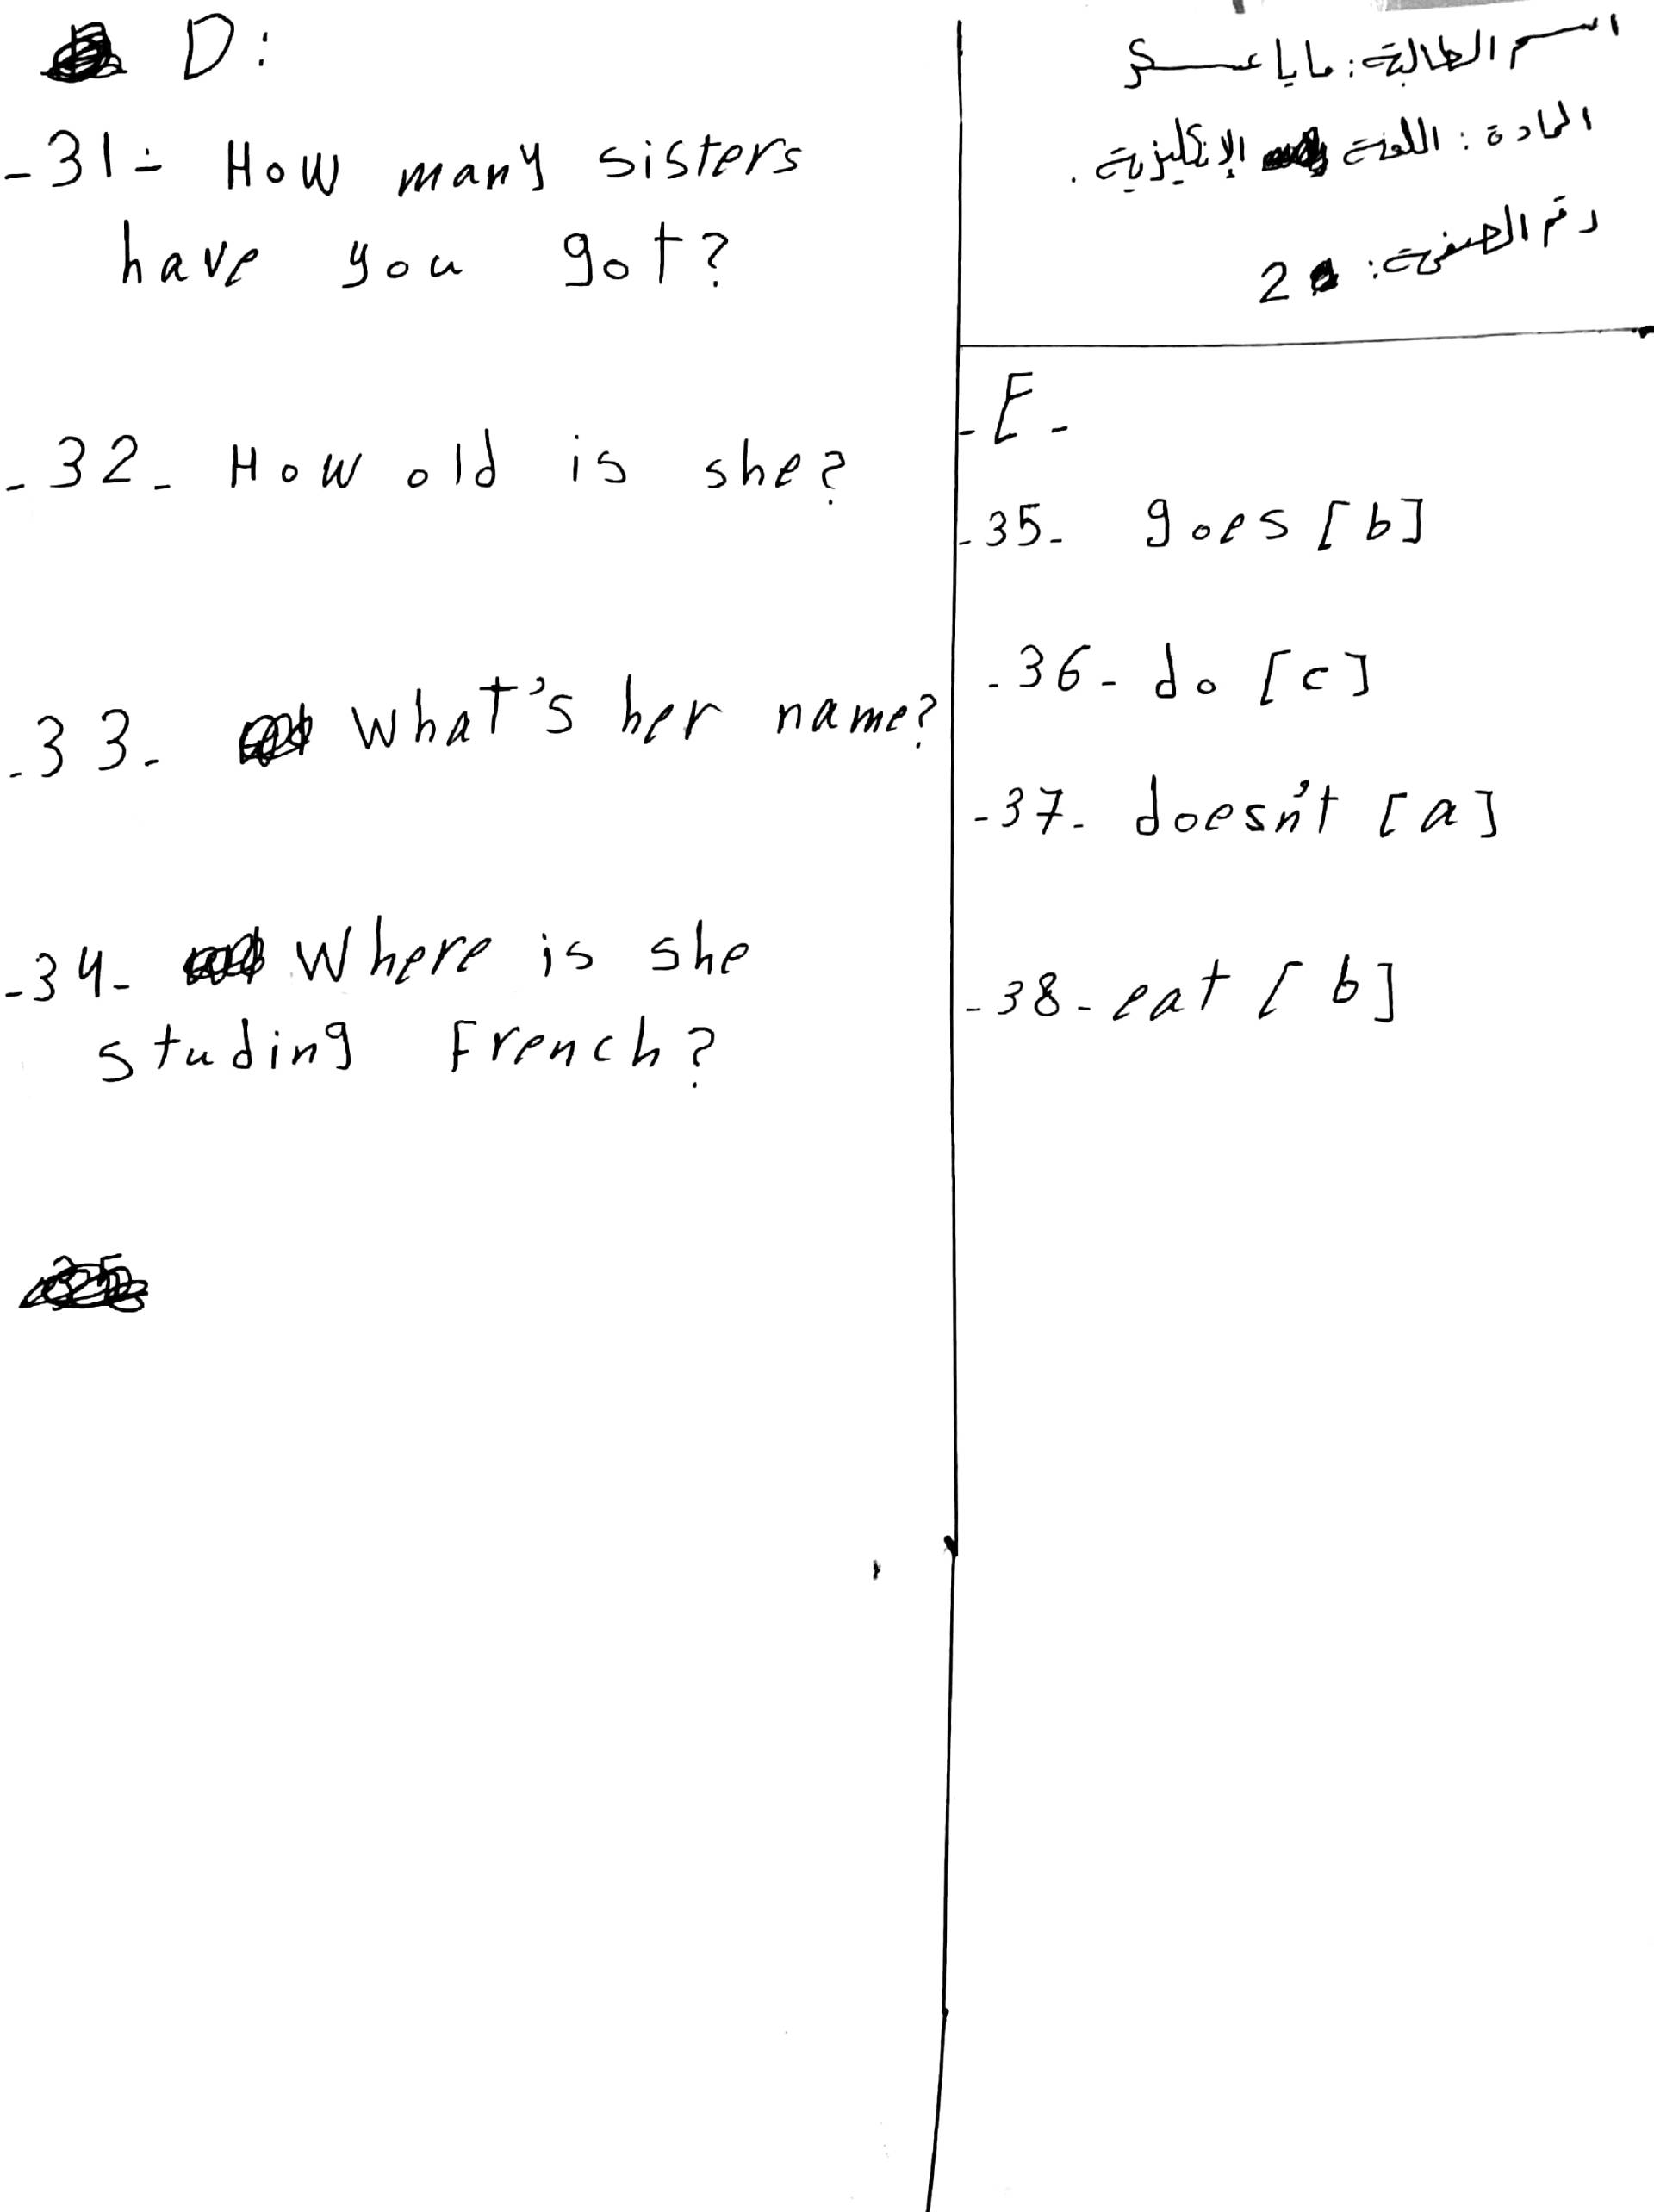 D:
-31- How many sisters
have you got?
-32- How old is she?
-33- what's her name?
-34- Where is she
studing French?
اسم الطالبة: مايا
المادة: اللغة الإنكليزية.
رقم الصفحة: 2
-E-
-35- goes [b]
-36- do [c]
-37- doesn't [a]
-38- eat [b]